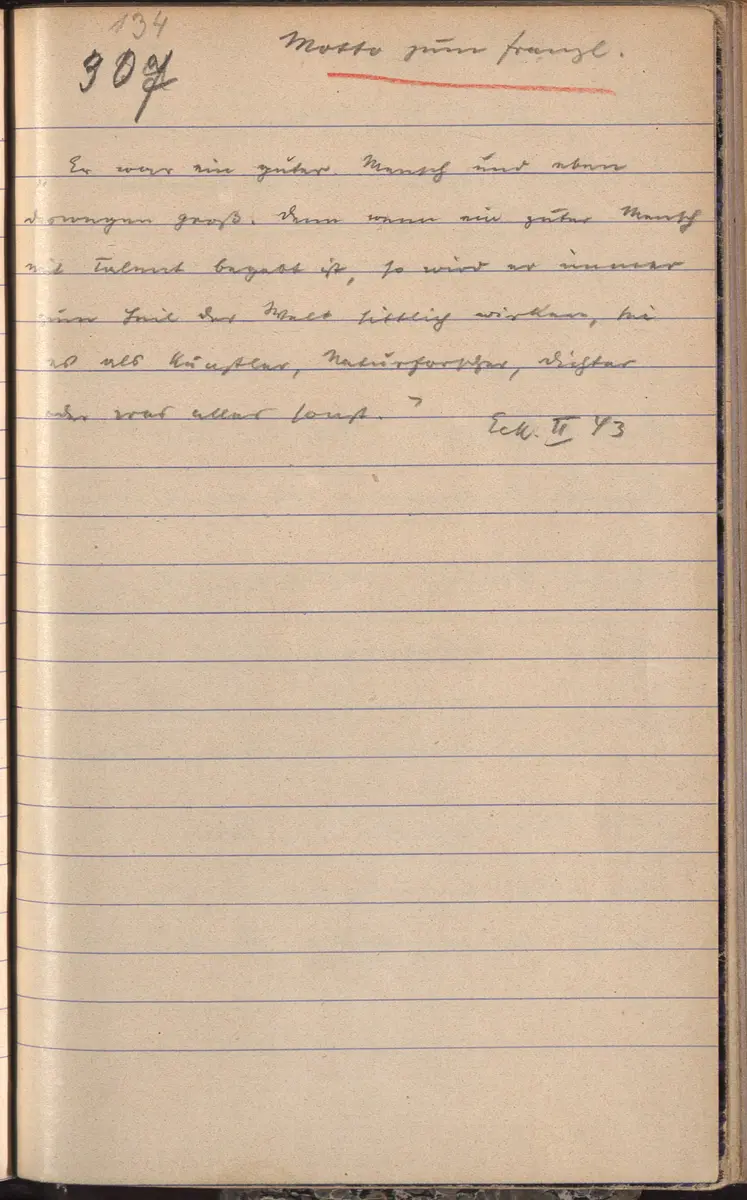 134
307
Motto zum Franzl.
„Er war ein guter Mensch und eben
deswegen groß. Denn wenn ein guter Mensch
mit Talent begabt ist, so wird er immer
zum Heil der Welt sittlich wirken, sei
es als Künstler, Naturforscher, Dichter
oder was alles sonst.“
Eck. II 43